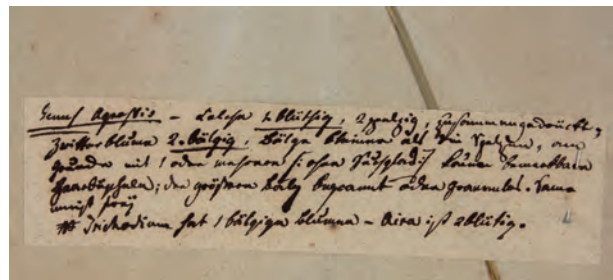 Genus Agrostis – Kelche 1.blüthig, 2 spelzig, zusammengedrückt,
Zwitterblume 2.bälgig, Bälge kleiner als die Spelzen, am
Grunde mit 1 oder mehreren /: ohne :/ keine bemerkbaren
Haarbüscheln; der größere Balg begrannt oder grannenlos. Same
meist frey
# Trichodium hat 1 bälgige Blumen – Aira ist 2blütig.